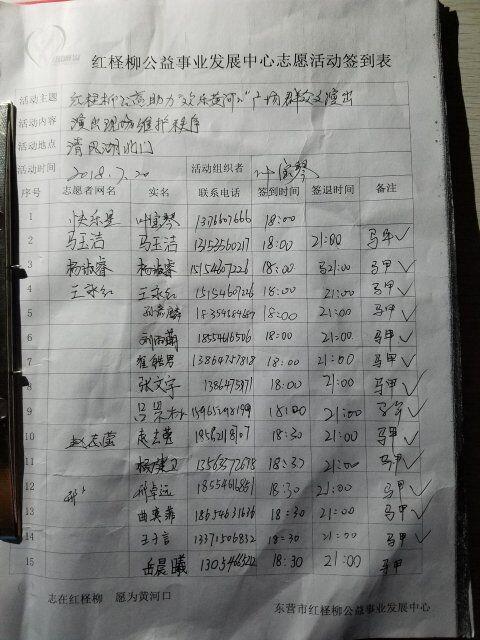 红柽柳公益事业发展中心志愿活动签到表
活动主题 红柽柳公益助力"欢乐黄河口"广场群众文演出
活动内容 演出现场维护秩序
活动地点 清风湖北门
活动时间 2018.7.20 活动组织者 叶宝琴
序号 志愿者网名 实名 联系电话 签到时间 签退时间 备注
1 快乐星 叶宝琴 18:00
2 马玉洁 马玉洁 13153560217 18:00 21:00 马甲✓
3 杨淑睿 杨淑睿 15154607226 18:00 21:00 马甲✓
4 王永红 王永红 15154607226 18:00 21:00 马甲✓
5 18:00 21:00 马甲✓
6 刘雨萌 18554616506 18:00 21:00 马甲✓
7 13864757818 18:00 21:00 马甲✓
8 张文宇 18:00 21:00 马甲✓
9 18:00 21:00 马甲✓
10 赵志莹 赵志莹 18:30 21:00 马甲✓
11 杨建卫 13563572678 18:30 21:00 马甲✓
12 邢卓远 18554616861 18:30 21:00 马甲✓
13 曲奕菲 18654631636 18:30 21:00 马甲✓
14 王子言 13371506832 18:30 21:00 马甲✓
15 岳晨曦 18:30 21:00 马甲
志在红柽柳 愿为黄河口
东营市红柽柳公益事业发展中心